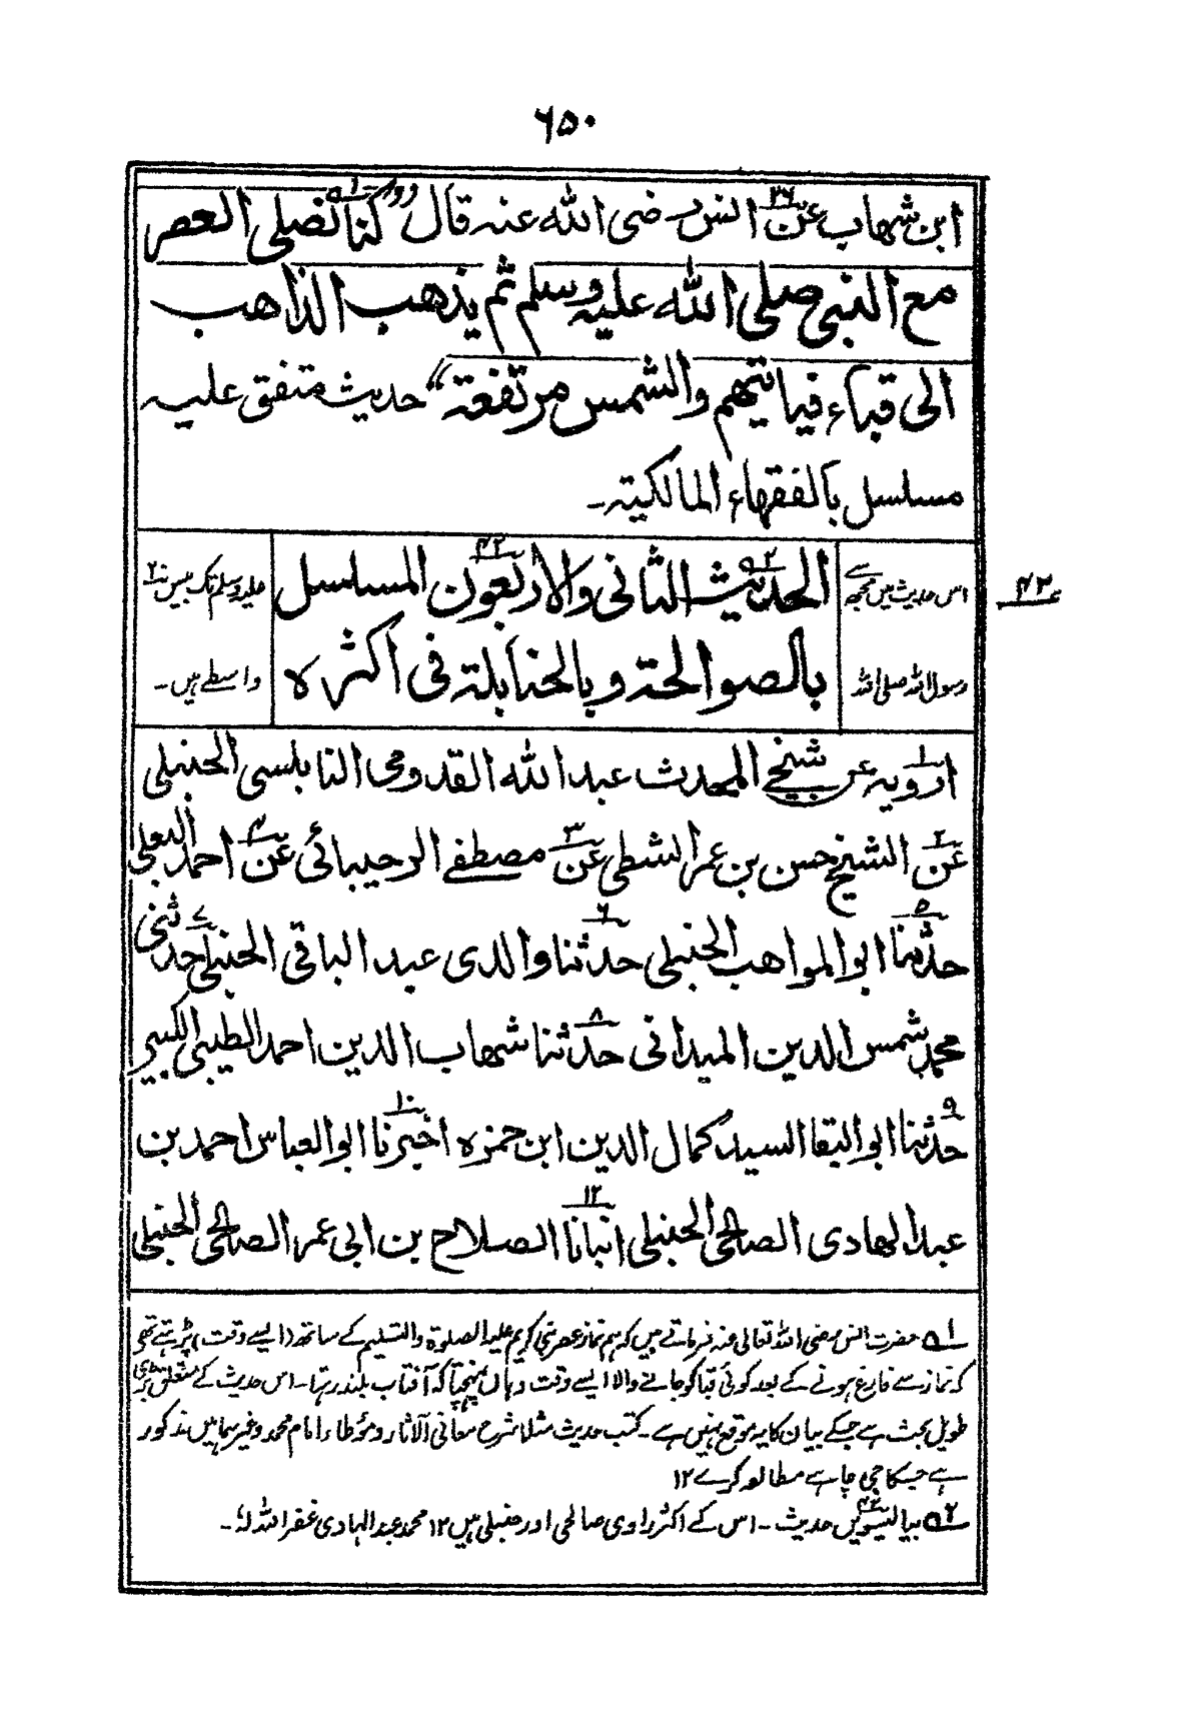 ۶۵۰
ابن شهاب عن۳۶ انس رضی الله عنه قال ”کنا۱ نصلی العصر
مع النبی صلی الله علیه وسلم ثم یذهب الذاهب
الی قباء فیاتیهم والشمس مرتفعة“ حدیث متفق علیه
مسلسل بالفقهاء المالکیة۔
۴۲
اس حدیث میں مجھ سے
رسول اللہ صلی اللہ
الحدیث۲ الثانی والاربعون۴۲ المسلسل
بالصوالحة وبالحنابلة فی اکثره
علیہ وسلم تک بیس۲۰
واسطے ہیں۔
ارویه۱ عن شیخی المحدث عبد الله القدومی النابلسی الحنبلی
عن۲ الشیخ حسن بن عمر الشطی عن۳ مصطفے الرحیبائی عن۴ احمد البعلی
حدثنا۵ ابو المواهب الحنبلی حدثنا۶ والدی عبد الباقی الحنبلی حدثنی۷
محمد شمس الدین المیدانی حدثنا۸ شهاب الدین احمد الطیبی الکبیر
حدثنا۹ ابو البقا السید کمال الدین ابن حمزه اخبرنا۱۰ ابو العباس احمد بن
عبد الهادی الصالحی الحنبلی انبانا۱۲ الصلاح بن ابی عمر الصالحی الحنبلی
۱؎ حضرت انس رضی اللہ تعالی عنہ فرماتے ہیں کہ ہم نماز عصر نبی کریم علیہ الصلوۃ والتسلیم کے ساتھ (ایسے وقت) پڑہتے تھے
کہ نماز سے فارغ ہونے کے بعد کوئی قبا کو جانے والا ایسے وقت وہاں پہنچتا کہ آفتاب بلند رہتا۔ اس حدیث کے متعلق بڑی
طویل بحث ہے جسکے بیان کا یہ موقع نہیں ہے۔ کتب حدیث مثلا شرح معانی الآثار و مؤطاء امام محمد وغیرہما میں مذکور
ہے جسکا جی چاہے مطالعہ کرے ۱۲
۲؎ بیالیسویں۴۲ حدیث۔ اس کے اکثر راوی صالحی اور حنبلی ہیں ۱۲ محمد عبد الہادی غفر اللہ لہٗ۔